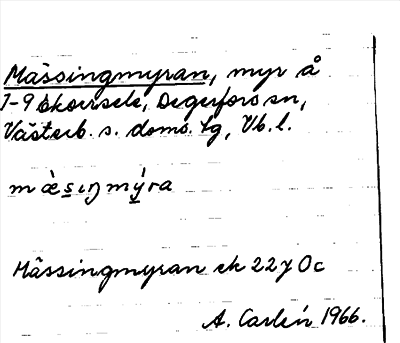 Mässingmyran, myr å
1-9 Ekorrsele, Degerfors sn,
Västerb. s. doms. lg, Vb. l.
m æ̀s̲ıŋmý̲ra
Mässingmyran ek 22 y 0c
A. Carlén 1966.